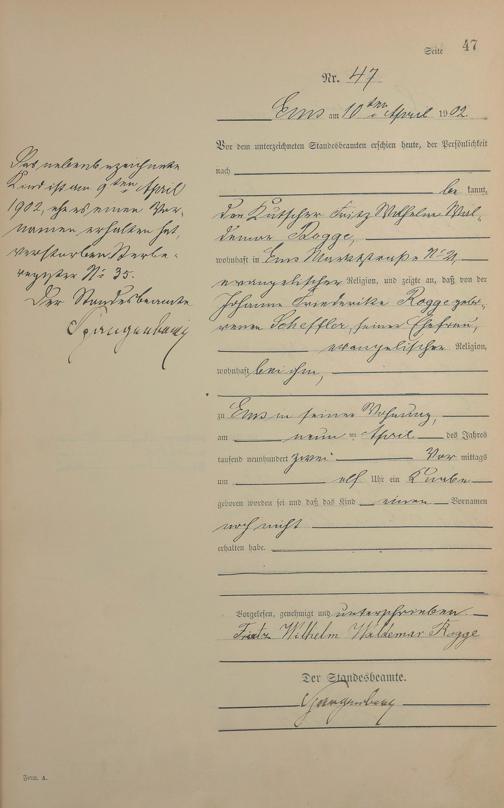 Seite 47
Nr. 47
Ems am 10ten April 1902
Vor dem unterzeichneten Standesbeamten erschien heute, der Persönlichkeit
nach
be kannt,
der Kutscher Fritz Wilhelm Wal-
demar Rogge,
wohnhaft in Ems Marktstraße No 21,
evangelischer Religion, und zeigte an, daß von der
Johanne Friederike Rogge gebo-
renen Scheffler, seiner Ehefrau,
evangelischer Religion,
wohnhaft bei ihm,
zu Ems in seiner Wohnung,
am neun ten April des Jahres
tausend neunhundert zwei Vor mittags
um elf Uhr ein Knabe
geboren worden sei und daß das Kind einen Vornamen
noch nicht
erhalten habe.
Vorgelesen, genehmigt und unterschrieben
Fritz Wilhelm Waldemar Rogge
Der Standesbeamte.
Spangenberg
Das nebenbezeichnete
Kind ist am 9ten April
1902, ehe es einen Vor-
namen erhalten hat,
verstorben Sterbe-
register No 35.
Der Standesbeamte
Spangenberg
Form. A.